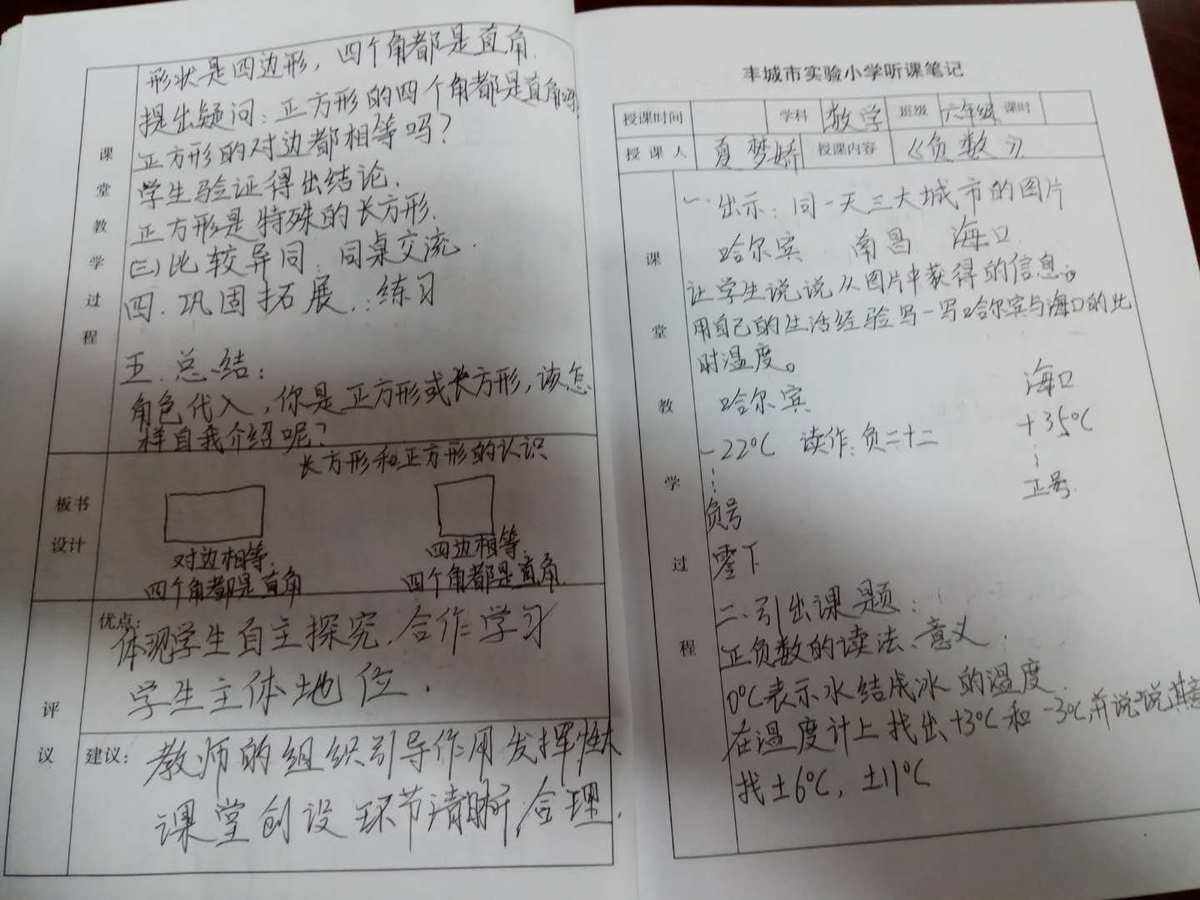 课堂教学过程
形状是四边形，四个角都是直角.
提出疑问：正方形的四个角都是直角吗
正方形的对边都相等吗？
学生验证得出结论.
正方形是特殊的长方形.
(三)比较异同：同桌交流.
四.巩固拓展：练习
五.总结：
角色代入，你是正方形或长方形，该怎
样自我介绍呢？
板书设计
长方形和正方形的认识
对边相等. 四边相等.
四个角都是直角 四个角都是直角.
评议
优点：
体现学生自主探究.合作学习
学生主体地位.
建议：教师的组织引导作用发挥
课堂创设环节清晰,合理.
丰城市实验小学听课笔记
授课时间 学科 数学 班级 六年级 课时
授课人 夏梦娇 授课内容 《负数》
课堂教学过程
一.出示：同一天三大城市的图片
哈尔宾 南昌 海口
让学生说说从图片中获得的信息。
用自己的生活经验写一写哈尔宾与海口的此
时温度。
哈尔宾 海口
-22℃ 读作：负二十二 +35℃
负号 正号.
零下
二.引出课题：
正负数的读法、意义.
0℃表示水结成冰的温度.
在温度计上找出+3℃和-3℃,并说说其意
找±6℃，±11℃